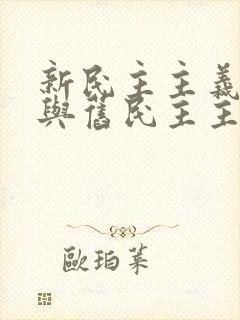 新民主主義
與舊民主主
歐珀萊